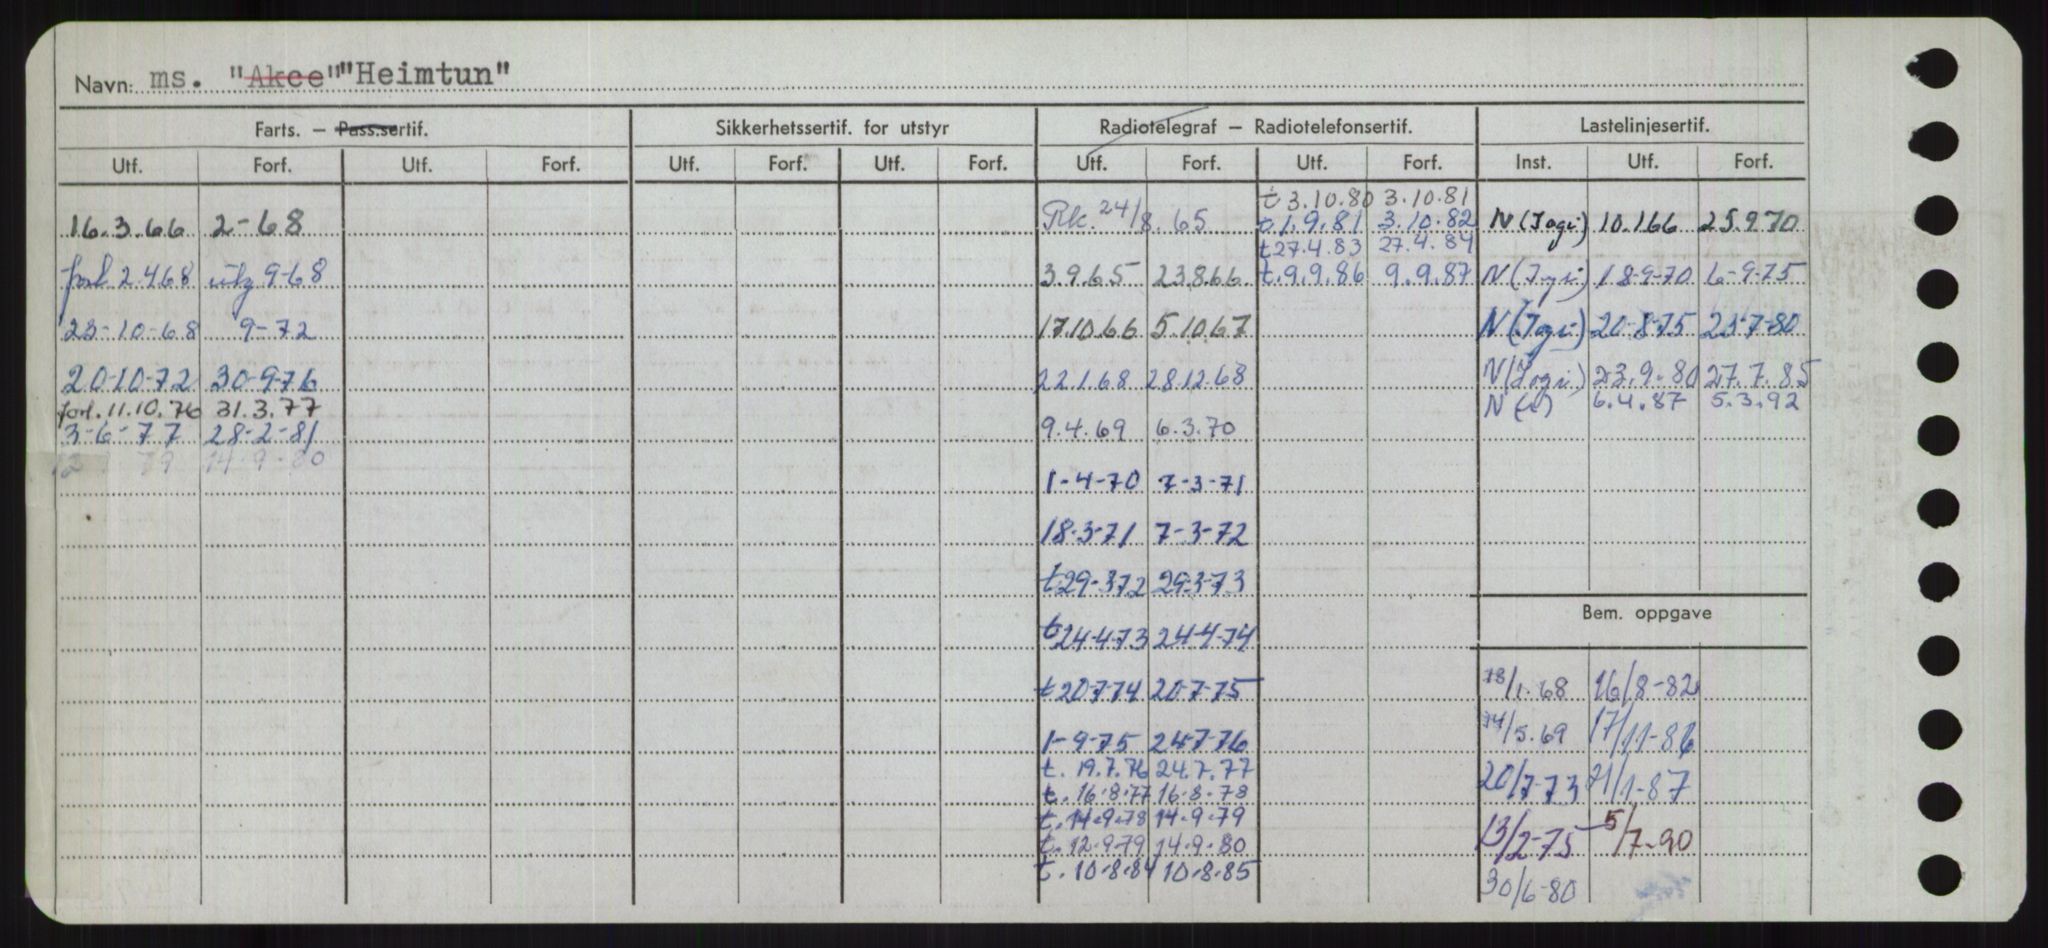 Navn: ms. "Akce""Heimtun"
Farts. – Pass.sertif. Sikkerhetssertif. for utstyr Radiotelegraf – Radiotelefonsertif. Lastelinjesertif.
Utf. Forf. Utf. Forf. Utf. Forf. Utf. Forf. Utf. Forf. Utf. Forf. Inst. Utf. Forf.
t 3.10.80 3.10.81
16.3.66 2-68 Rk. 24/8.65 t.1.9.81 3.10.82 N (Jogi) 10.1.66 25.9.70
t27.4.83 27.4.84
forl 2.4.68 utg 9-68 3.9.65 23.8.66 t.9.9.86 9.9.87 N (Jogi) 18-9-70 6-9-75
23-10-68 9-72 17.10.66 5.10.67 N (Jogi) 20-8-75 25-7-80
20-10-72 30-9-76 22.1.68 28.12.68 N (Jogi) 23.9.80 27.7.85
forl. 11.10.76 31.3.77 N 6.4.87 5.3.92
3-6-77 28-2-81 9.4.69 6.3.70
12 79 14-9-80
1-4-70 7-3-71
18-3-71 7-3-72
t29-3-72 29-3-73
Bem. oppgave
t24-4-73 24-4-74
t20-7-74 20-7-75 18/1.68 16/8-82
1-9-75 24-7-76 14/5.69 17/11-86
t. 19.7.76 24.7.77
t. 16.8.77 16-8-78 20/7-73 21/1-87
t. 14.9.78 14.9.79
t. 12.9.79 14.9.80 13/2-75 5/7-90
t. 10.8.84 10.8.85
30/6-80